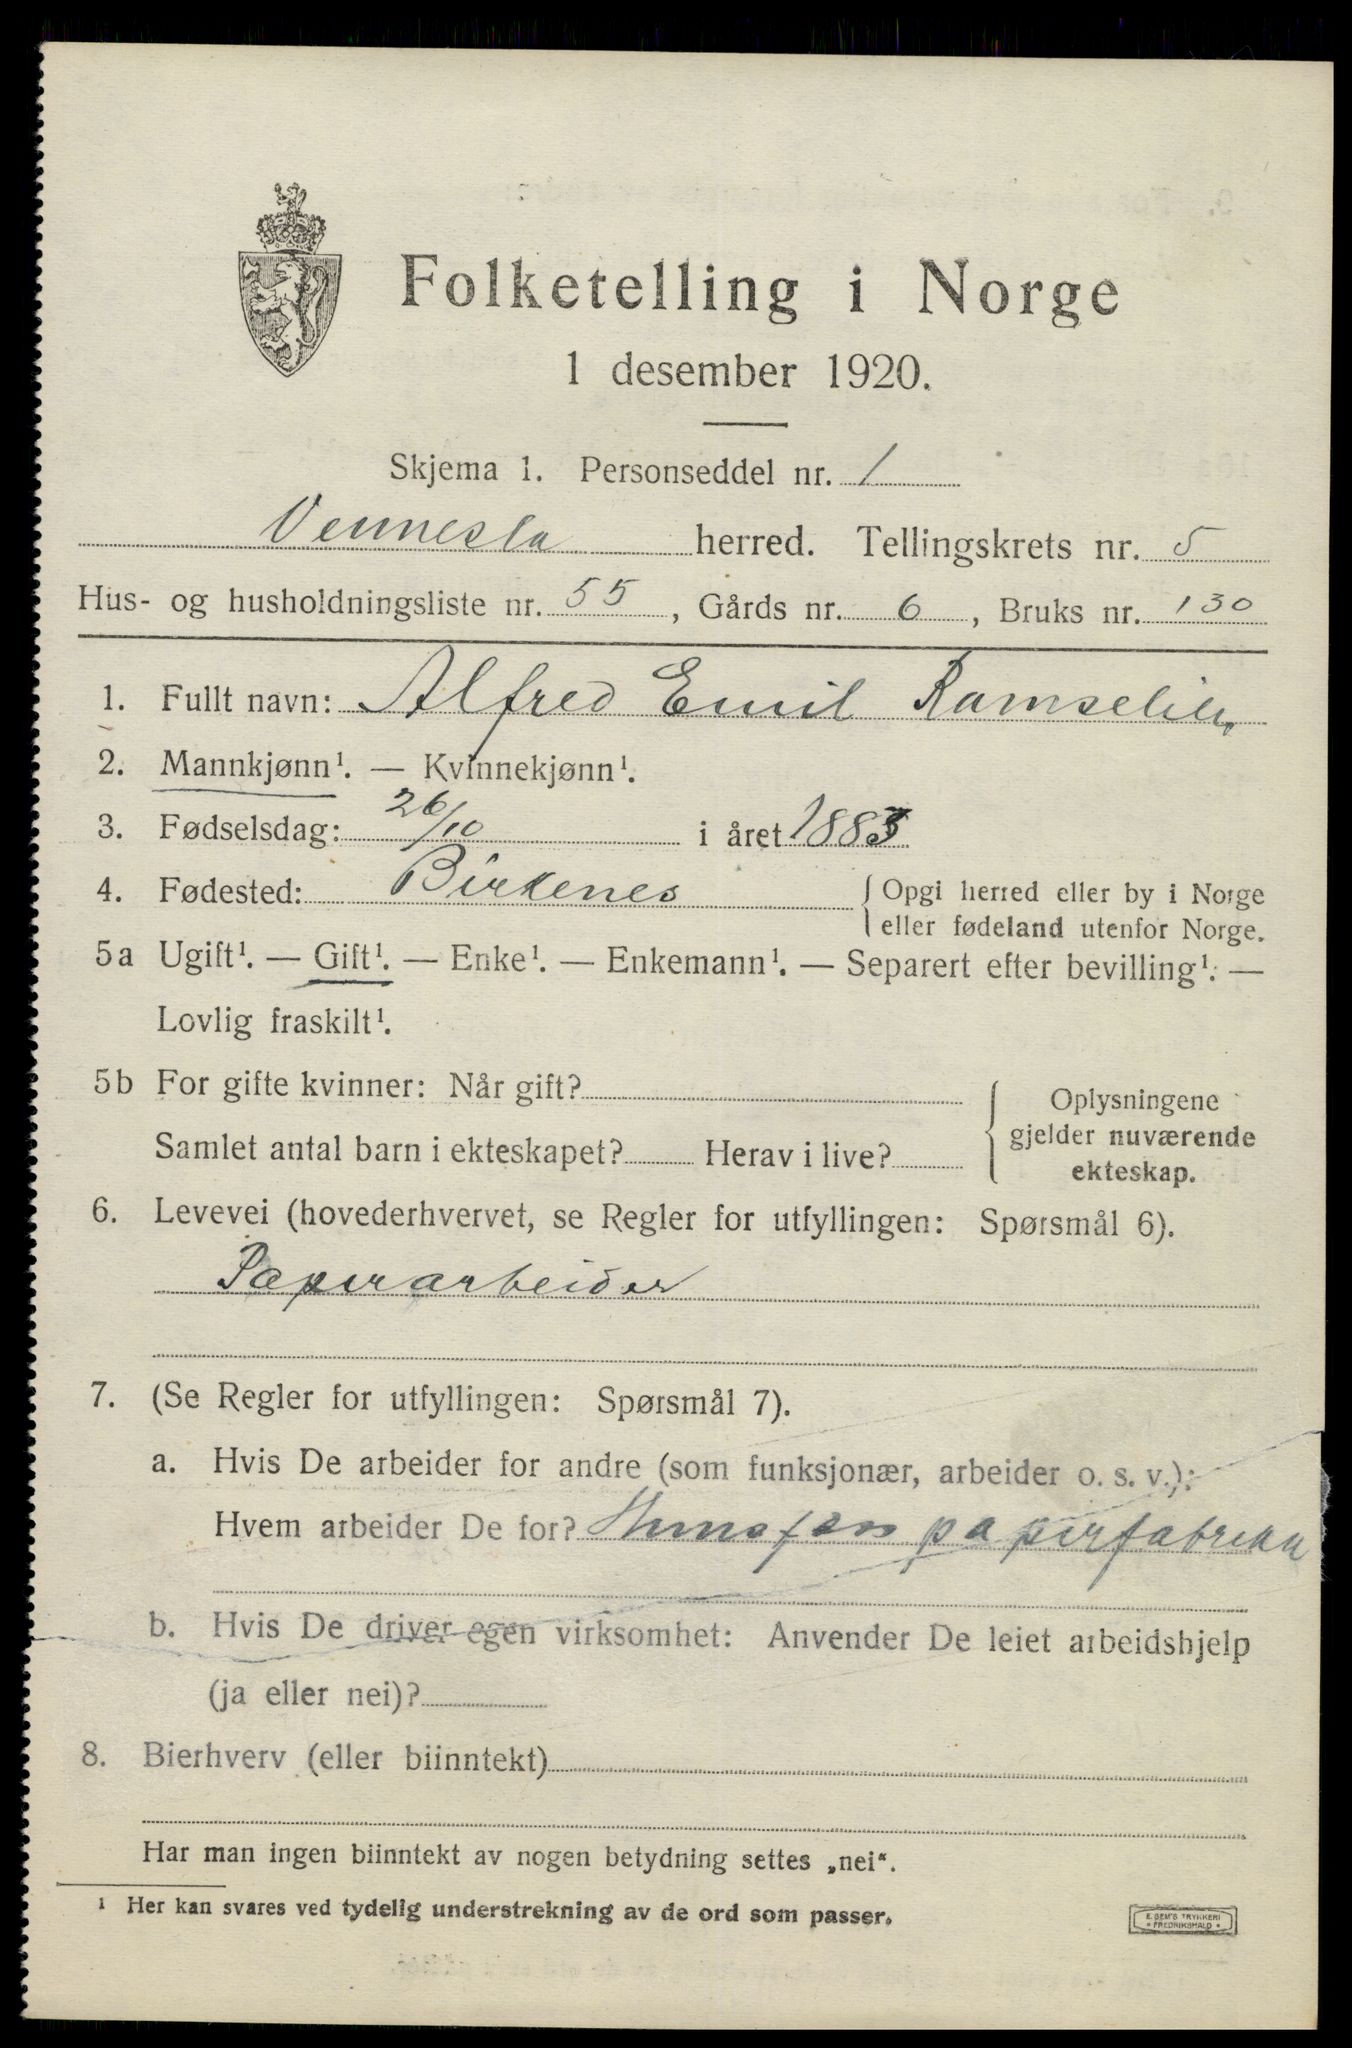 Folketelling i Norge
1 desember 1920.
Skjema 1. Personseddel nr. 1
Vennesla herred. Tellingskrets nr. 5
Hus- og husholdningsliste nr. 55, Gårds nr. 6, Bruks nr. 130
1. Fullt navn: Alfred Emil
2. Mannkjønn¹. — Kvinnekjønn¹.
3. Fødselsdag: 26/10 i året 1883
4. Fødested: Birkenes { Opgi herred eller by i Norge
eller fødeland utenfor Norge.
5a Ugift¹. — Gift¹. — Enke¹. — Enkemann¹. — Separert efter bevilling¹. —
Lovlig fraskilt¹.
5b For gifte kvinner: Når gift?
Samlet antal barn i ekteskapet? Herav i live?
Oplysningene
gjelder nuværende
ekteskap.
6. Levevei (hovederhvervet, se Regler for utfyllingen: Spørsmål 6).
Papirarbeider
7. (Se Regler for utfyllingen: Spørsmål 7).
a. Hvis De arbeider for andre (som funksjonær, arbeider o. s. v.):
Hvem arbeider De for? Hunsfos papirfabrikk
b. Hvis De driver egen virksomhet: Anvender De leiet arbeidshjelp
(ja eller nei)?
8. Bierhverv (eller biinntekt)
Har man ingen biinntekt av nogen betydning settes „nei“.
¹ Her kan svares ved tydelig understrekning av de ord som passer.
E. SEM'S TRYKKERI
* FREDRIKSHALD *